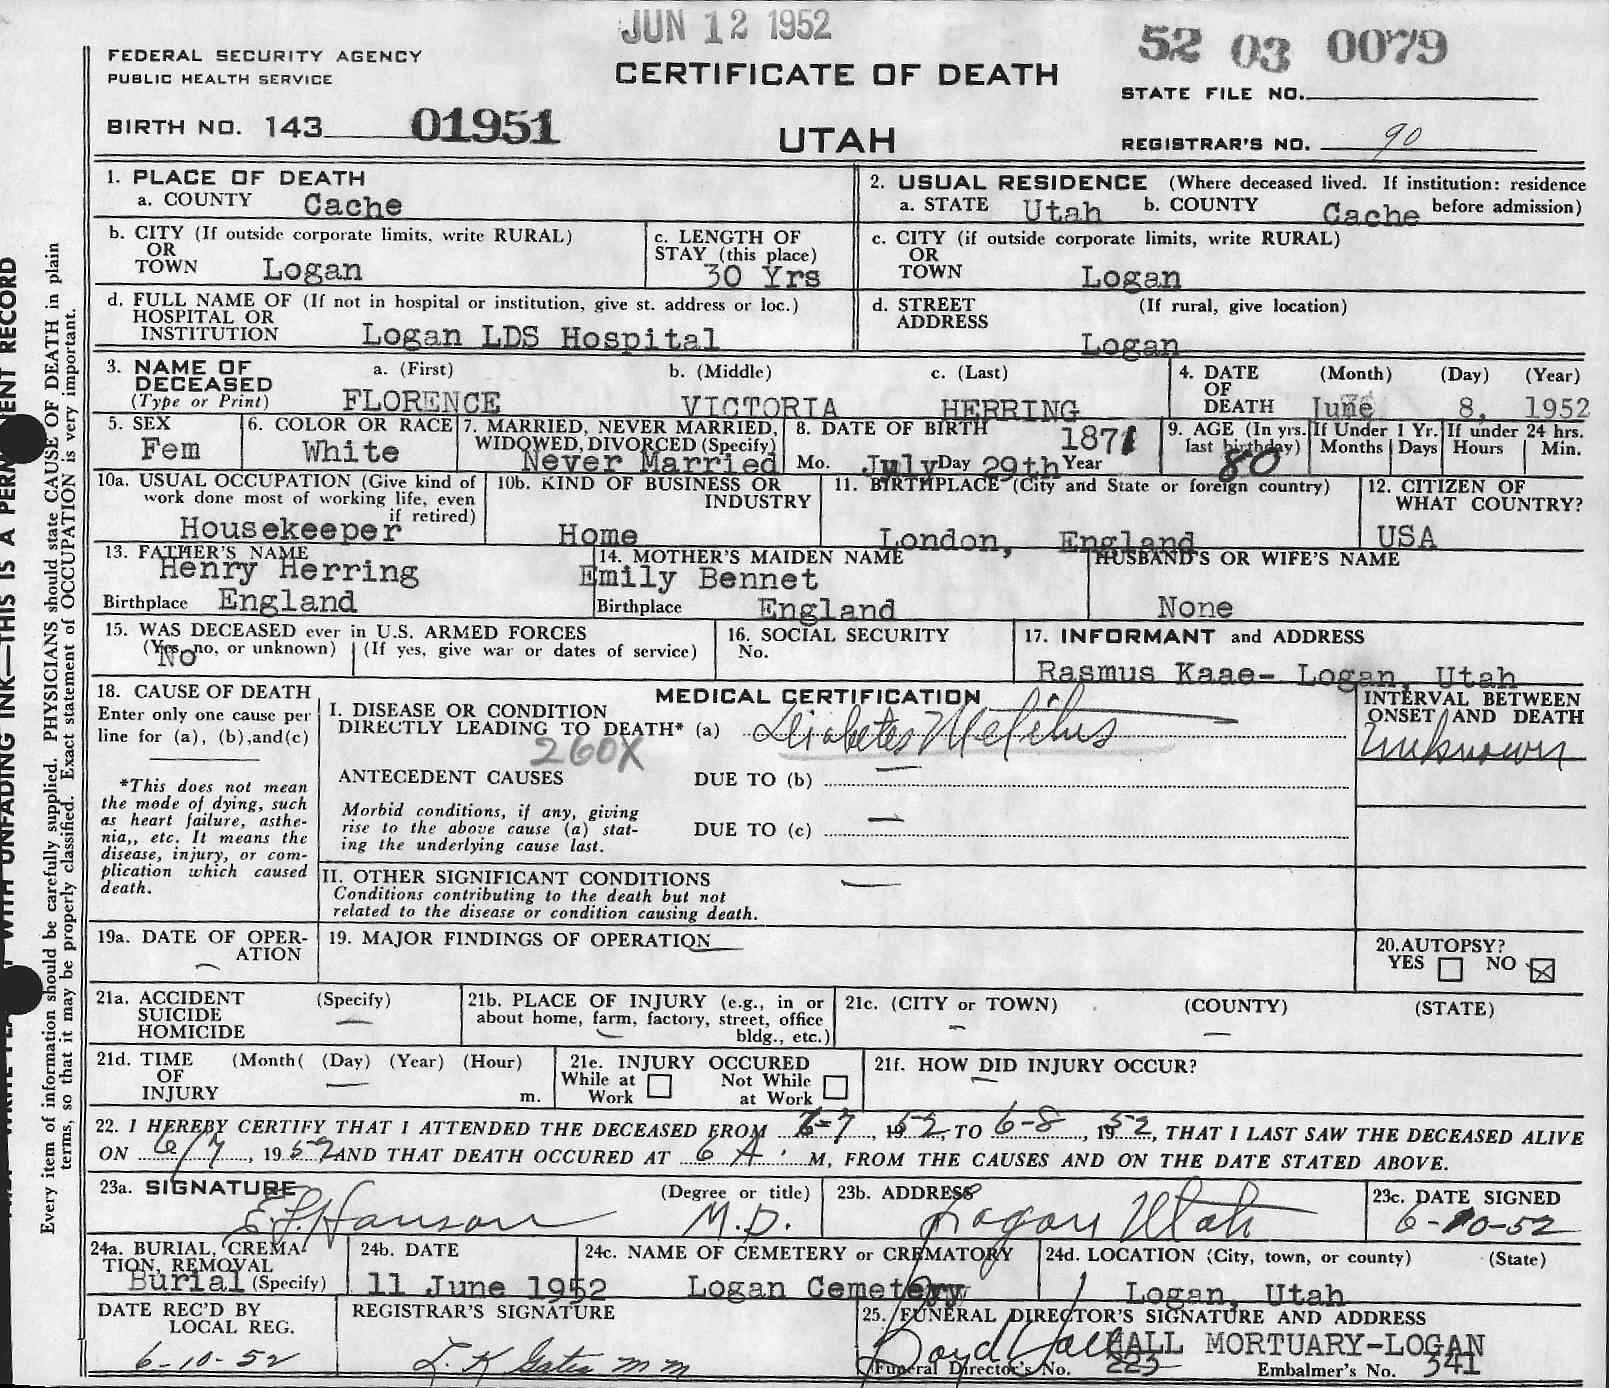 JUN 12 1952
52 03 0079
FEDERAL SECURITY AGENCY
PUBLIC HEALTH SERVICE
CERTIFICATE OF DEATH
STATE FILE NO.
BIRTH NO. 143 01951
UTAH
REGISTRAR'S NO. 90
1. PLACE OF DEATH
a. COUNTY Cache
2. USUAL RESIDENCE (Where deceased lived. If institution: residence
a. STATE Utah b. COUNTY Cache before admission)
b. CITY (If outside corporate limits, write RURAL)
OR
TOWN Logan
c. LENGTH OF
STAY (this place)
30 Yrs
c. CITY (if outside corporate limits, write RURAL)
OR
TOWN Logan
d. FULL NAME OF (If not in hospital or institution, give st. address or loc.)
HOSPITAL OR
INSTITUTION Logan LDS Hospital
d. STREET (If rural, give location)
ADDRESS
Logan
3. NAME OF a. (First) b. (Middle) c. (Last)
DECEASED
(Type or Print) FLORENCE VICTORIA HERRING
4. DATE (Month) (Day) (Year)
OF
DEATH June 8, 1952
5. SEX
Fem
6. COLOR OR RACE
White
7. MARRIED, NEVER MARRIED,
WIDOWED, DIVORCED (Specify)
Never Married
8. DATE OF BIRTH 1871
Mo. July Day 29th Year
9. AGE (In yrs.
last birthday)
80
If Under 1 Yr.
Months Days
If under 24 hrs.
Hours Min.
10a. USUAL OCCUPATION (Give kind of
work done most of working life, even
if retired)
Housekeeper
10b. KIND OF BUSINESS OR
INDUSTRY
Home
11. BIRTHPLACE (City and State or foreign country)
London, England
12. CITIZEN OF
WHAT COUNTRY?
USA
13. FATHER'S NAME
Henry Herring
Birthplace England
14. MOTHER'S MAIDEN NAME
Emily Bennet
Birthplace England
HUSBAND'S OR WIFE'S NAME
None
15. WAS DECEASED ever in U.S. ARMED FORCES
(Yes, no, or unknown) (If yes, give war or dates of service)
No
16. SOCIAL SECURITY
No.
17. INFORMANT and ADDRESS
Rasmus Kaae- Logan, Utah
18. CAUSE OF DEATH
Enter only one cause per
line for (a), (b),and(c)
*This does not mean
the mode of dying, such
as heart failure, asthe-
nia,, etc. It means the
disease, injury, or com-
plication which caused
death.
MEDICAL CERTIFICATION
I. DISEASE OR CONDITION
DIRECTLY LEADING TO DEATH* (a) Diabetes Mellitus
260X
ANTECEDENT CAUSES DUE TO (b)
Morbid conditions, if any, giving
rise to the above cause (a) stat-
ing the underlying cause last.
DUE TO (c)
INTERVAL BETWEEN
ONSET AND DEATH
Unknown
II. OTHER SIGNIFICANT CONDITIONS
Conditions contributing to the death but not
related to the disease or condition causing death.
19a. DATE OF OPER-
ATION
19. MAJOR FINDINGS OF OPERATION
20. AUTOPSY?
YES NO
21a. ACCIDENT (Specify)
SUICIDE
HOMICIDE
21b. PLACE OF INJURY (e.g., in or
about home, farm, factory, street, office
bldg., etc.)
21c. (CITY or TOWN) (COUNTY) (STATE)
21d. TIME (Month( (Day) (Year) (Hour)
OF
INJURY m.
21e. INJURY OCCURED
While at Work Not While at Work
21f. HOW DID INJURY OCCUR?
22. I HEREBY CERTIFY THAT I ATTENDED THE DECEASED FROM 6-7, 1952, TO 6-8, 1952, THAT I LAST SAW THE DECEASED ALIVE
ON 6/7, 1952 AND THAT DEATH OCCURED AT 6 A. M, FROM THE CAUSES AND ON THE DATE STATED ABOVE.
23a. SIGNATURE (Degree or title)
Hanson M.D.
23b. ADDRESS
Logan Utah
23c. DATE SIGNED
6-10-52
24a. BURIAL, CREMA-
TION, REMOVAL
Burial (Specify)
24b. DATE
11 June 1952
24c. NAME OF CEMETERY or CREMATORY
Logan Cemetery
24d. LOCATION (City, town, or county) (State)
Logan, Utah
DATE REC'D BY
LOCAL REG.
6-10-52
REGISTRAR'S SIGNATURE
25. FUNERAL DIRECTOR'S SIGNATURE AND ADDRESS
Boyd Hall HALL MORTUARY-LOGAN
Funeral Director's No. 223 Embalmer's No. 341
Every item of information should be carefully supplied. PHYSICIANS should state CAUSE OF DEATH in plain
terms, so that it may be properly classified. Exact statement of OCCUPATION is very important.
WITH UNFADING INK—THIS IS A RECORD